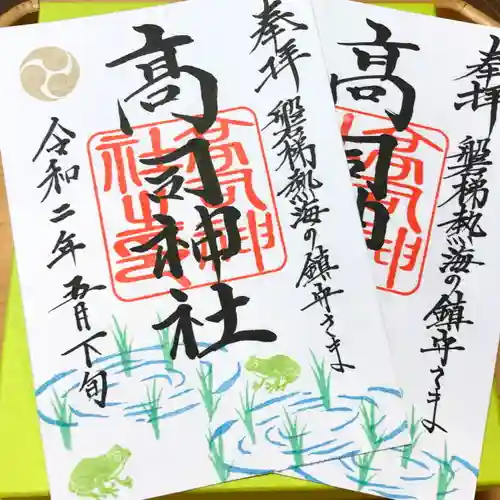 奉拝
磐梯熱海の鎮守さま
高司神社
令和二年五月下旬
奉拝
磐梯熱海の鎮守さま
高司神